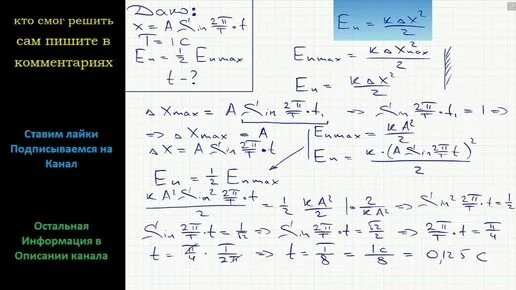 кто смог решить
сам пишите в
комментариях
Ставим лайки
Подписываемся на
Канал
Остальная
Информация в
Описании канала
Дано:
x = A Sin 2π/T · t
T = 1 C
Eп = 1/2 Eп max
t - ?
Eп = кΔx²/2
Eп max = кΔXmax²/2
Eп = кΔx²/2
ΔXmax = A Sin 2π/T · t₁ ⇒ Sin 2π/T t₁ = 1 ⇒
⇒ ΔXmax = A
Eп max = кA²/2
ΔX = A Sin 2π/T · t
Eп = к · (A Sin 2π/T t)²/2
Eп = 1/2 Eп max
кA² Sin² 2π/T · t/2 = 1/2 кA²/2 | · 2/кA² ⇒ Sin² 2π/T · t = 1/2
Sin 2π/T · t = 1/√2 ⇒ Sin 2π/T · t = √2/2 ⇒ 2π/T · t = π/4
t = π/4 · T/2π ⇒ t = T/8 = 1c/8 = 0,125 C